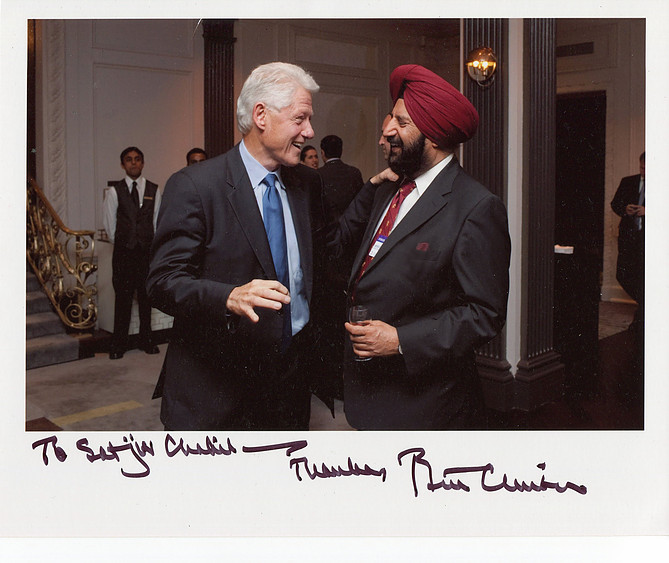 To Satjiv Chahil — Thanks, Bill Clinton